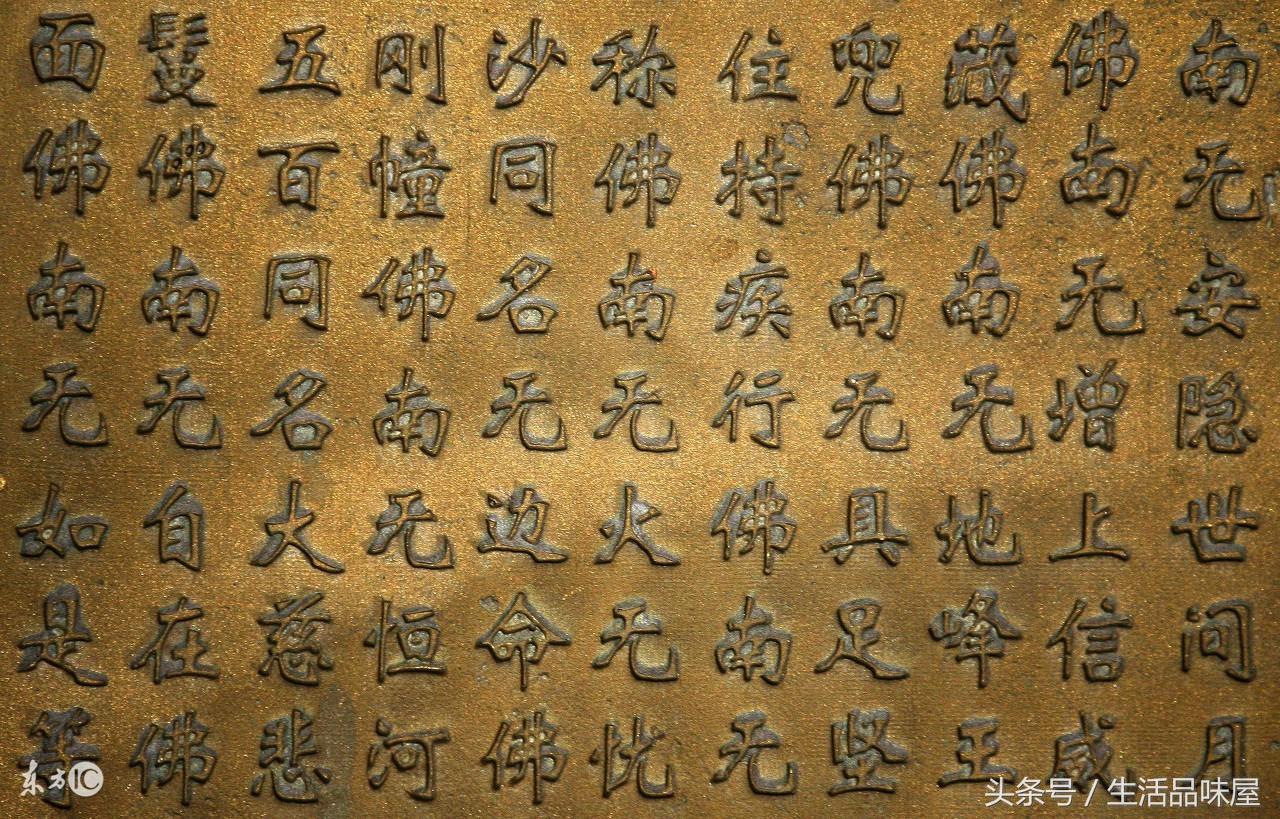 南无安隐世间月
佛南无增上信威
藏佛南无地峰王
兜佛南无具足坚
住持疾行佛南无
称佛南无火无
沙同名无边命佛
刚幢佛南无恒河
五百同名大慈悲
鬘佛南无自在佛
面佛南无如是等
东方IC
头条号 / 生活品味屋